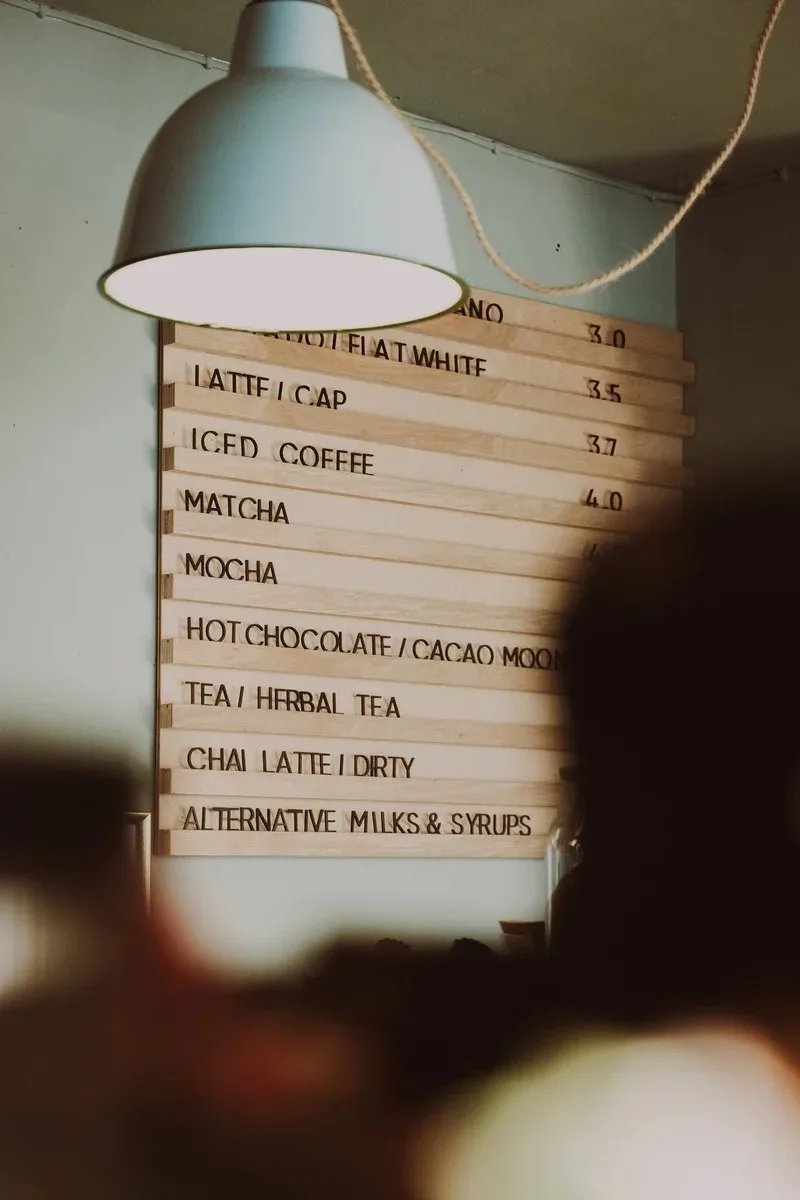 3.0
FLAT WHITE 3.5
LATTE / CAP 3.7
ICED COFFEE 4.0
MATCHA
MOCHA
HOT CHOCOLATE / CACAO MOON
TEA / HERBAL TEA
CHAI LATTE / DIRTY
ALTERNATIVE MILKS & SYRUPS